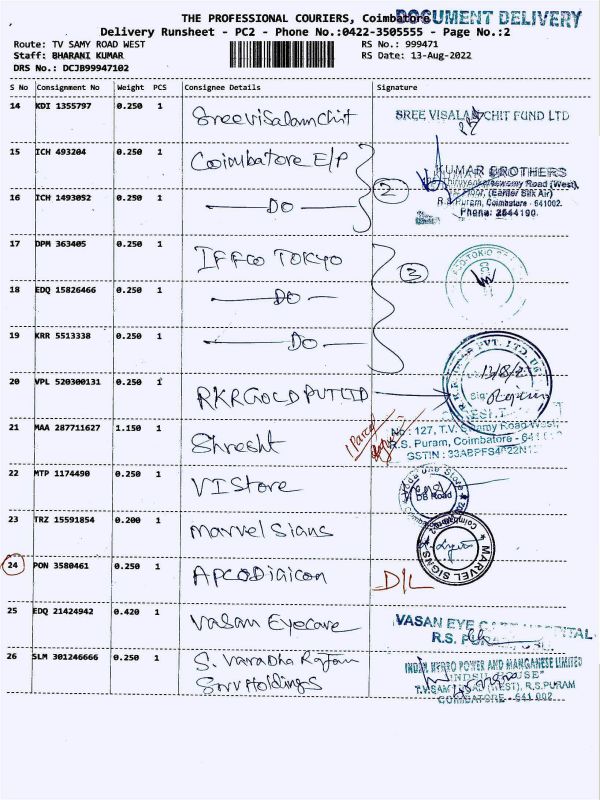 THE PROFESSIONAL COURIERS, Coimbatore
DOCUMENT DELIVERY
Delivery Runsheet - PC2 - Phone No.:0422-3505555 - Page No.:2
Route: TV SAMY ROAD WEST RS No.: 999471
Staff: BHARANI KUMAR RS Date: 13-Aug-2022
DRS No.: DCJB99947102
S No Consignment No Weight PCS Consignee Details Signature
14 KDI 1355797 0.250 1 Sree Visalam Chit SREE VISALAM CHIT FUND LTD
15 ICH 493204 0.250 1 Coimbatore E/P
KUMAR BROTHERS
Road (West),
Floor, (Earlier Silk Air)
R.S. Puram, Coimbatore - 641002.
Phone: 2544190.
16 ICH 1493052 0.250 1 DO 2
17 DPM 363405 0.250 1 IFFCO TOKYO
18 EDQ 15826466 0.250 1 DO 3
19 KRR 5513338 0.250 1 DO
20 VPL 520300131 0.250 1 RKR GOLD PVT LTD
21 MAA 287711627 1.150 1 Shresht
1 Parcel
No : 127, T.V. Swamy Road West,
R.S. Puram, Coimbatore - 641
GSTIN : 33ABPFS4
22 MTP 1174490 0.250 1 VI Store DB Road
23 TRZ 15591854 0.200 1 Marvel Sians
MARVEL SIGNS
Coimbatore
24 PON 3580461 0.250 1 APCODiaicon D/L
25 EDQ 21424942 0.420 1 Vasan Eyecare
VASAN EYE CARE HOSPITAL
R.S. PURAM,
26 SLM 301246666 0.250 1 S. Varadha Rajan
Snrv Holdings
INDSIL HYDRO POWER AND MANGANESE LIMITED
"INDSIL HOUSE"
T.V.SAMY ROAD (WEST), R.S.PURAM
COIMBATORE - 641 002